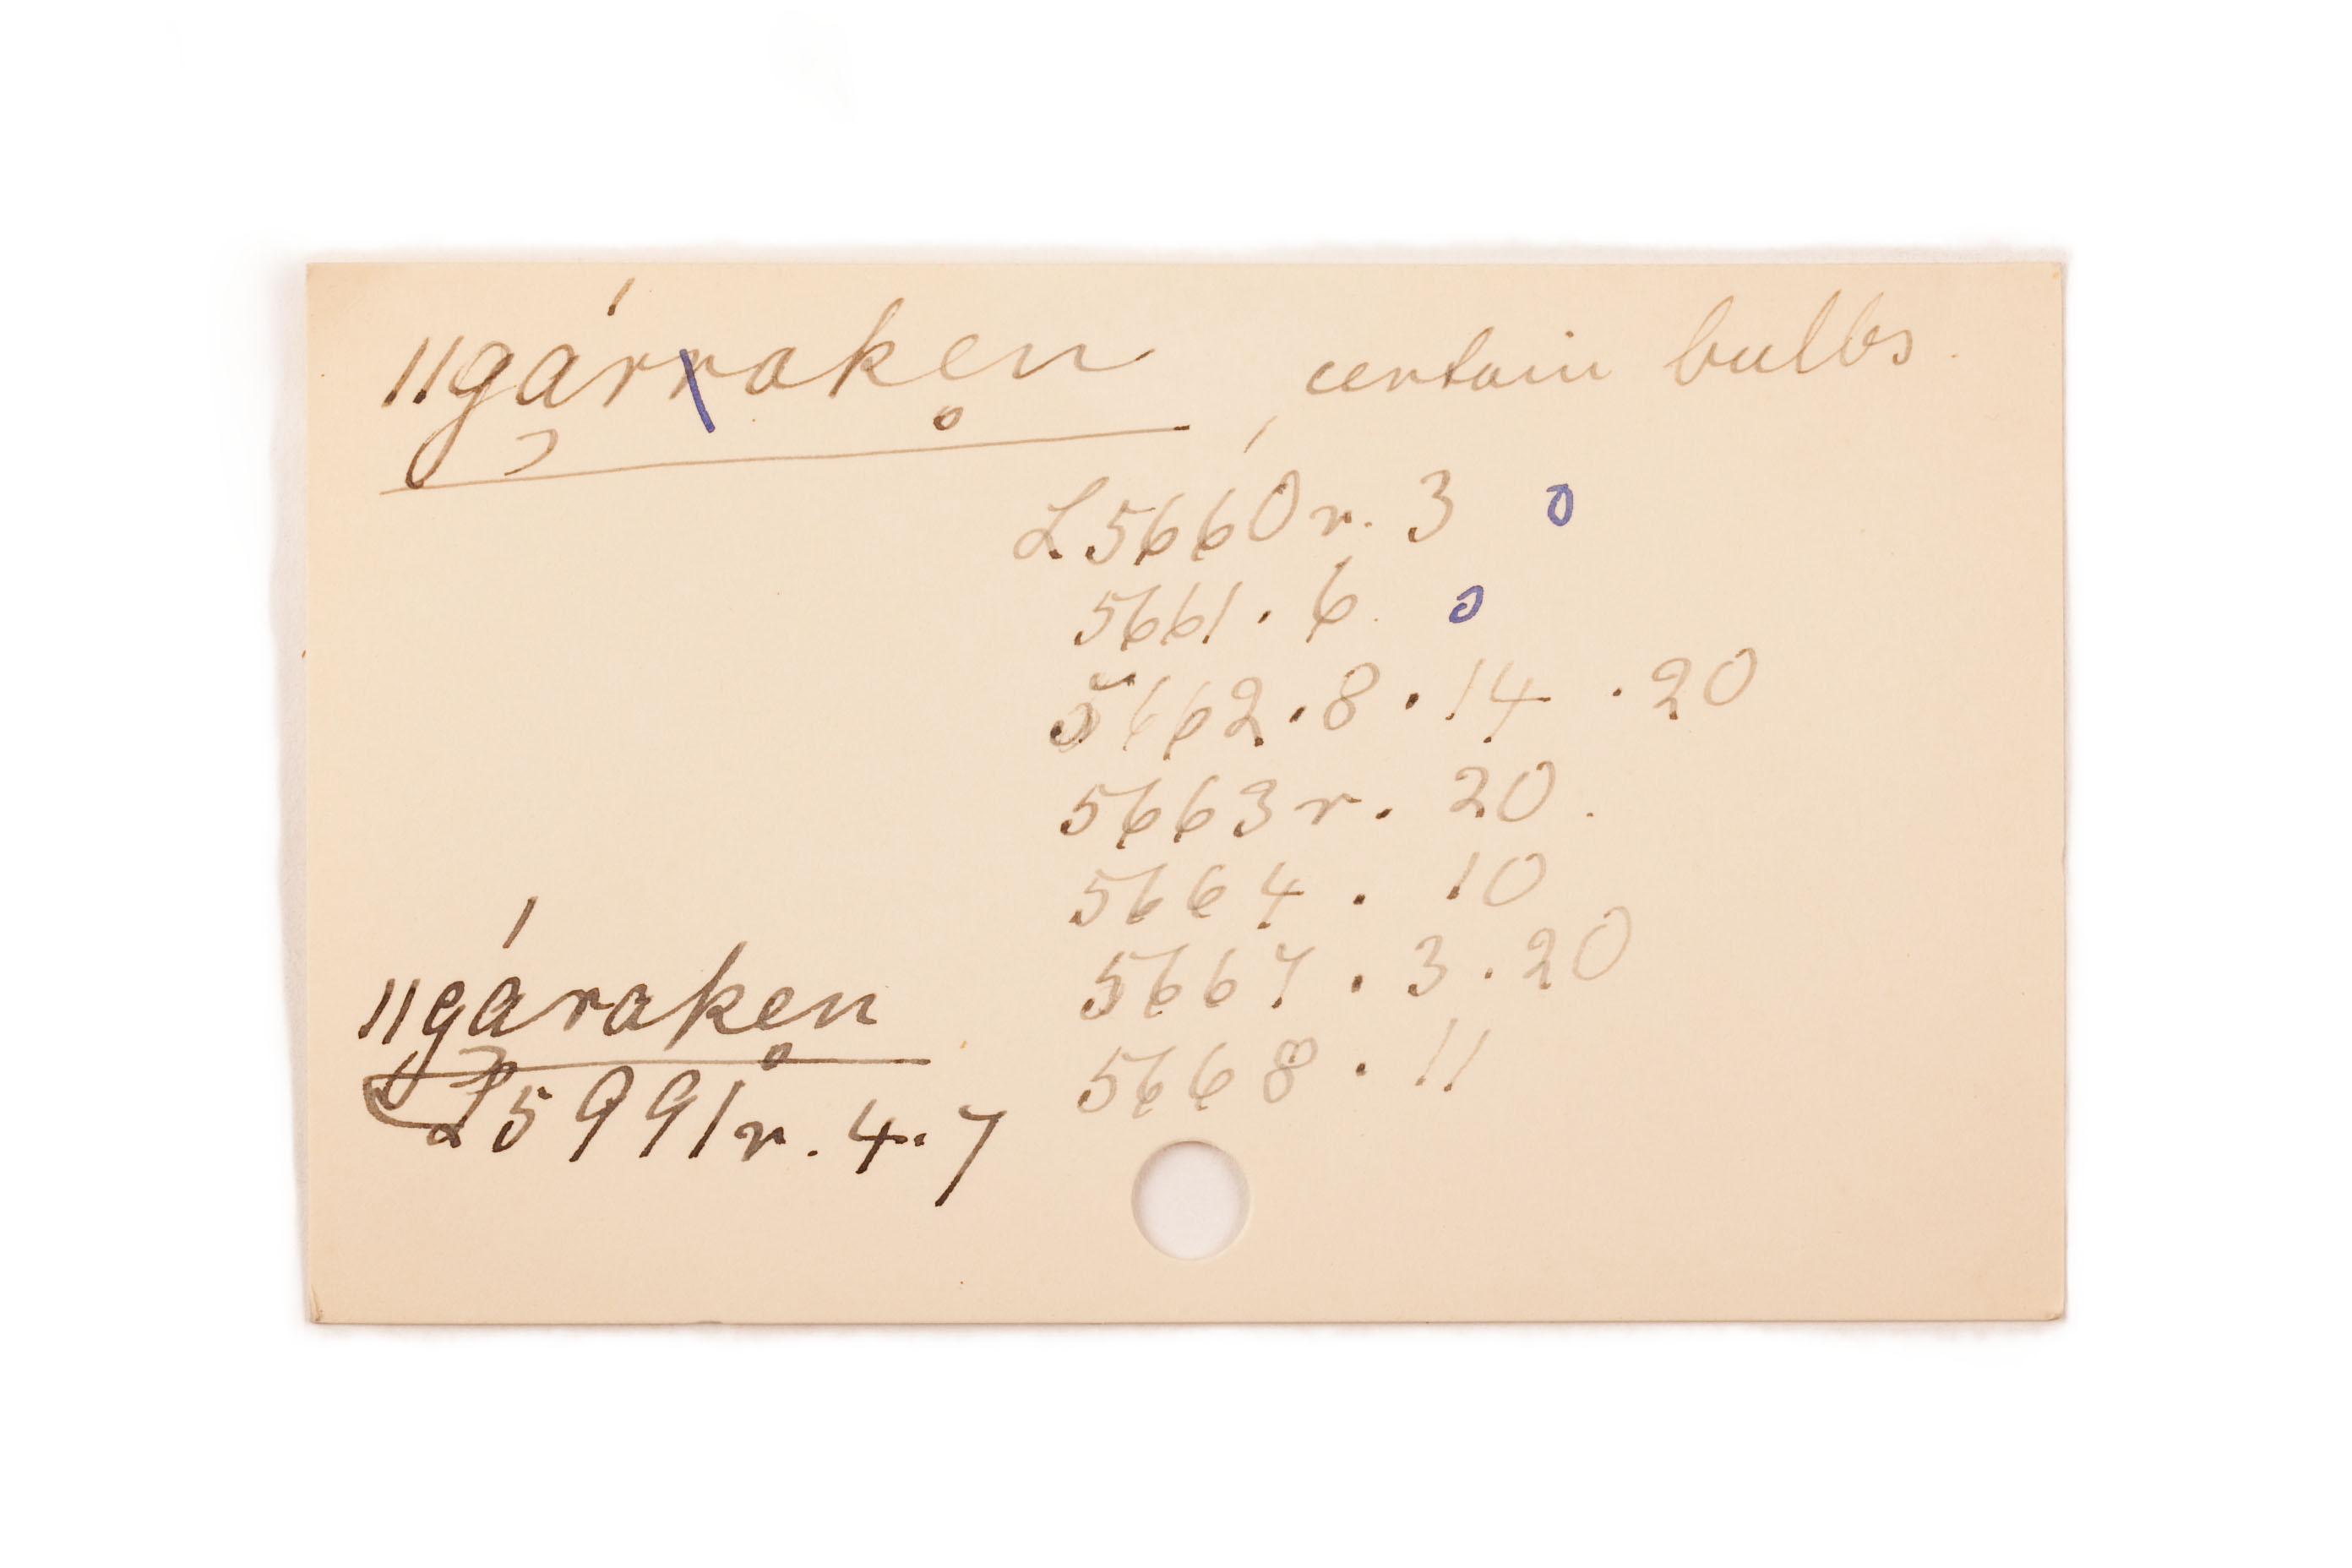 ǁgárraken, certain bulbs.
L5660r. 3 o
5661. 6. o
5662. 8. 14. 20
5663r. 20.
5664. 10
5667. 3. 20
5668. 11
ǁgáraken
L5991r. 4. 7